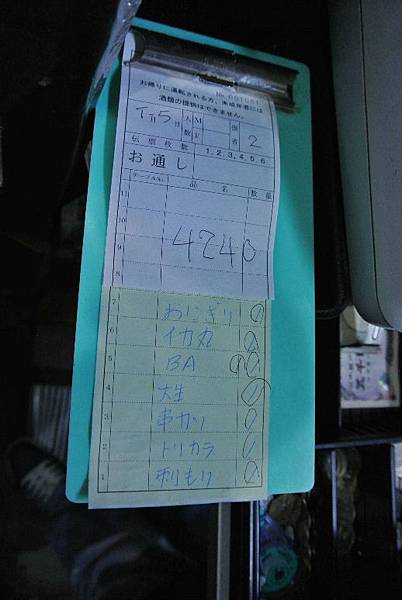 No. 001061
お帰りに運転される方、未成年者には
酒類の提供はできません。
月 5日 人数 M F 係者 2
伝票枚数 1, 2, 3, 4, 5, 6
お通し
テーブルNo. 品名 数量
11
10
9 4240
8
7 おにぎり
6 イカ丸
5 BA
4 大生
3 串カツ
2 トリカラ
1 ホリもり